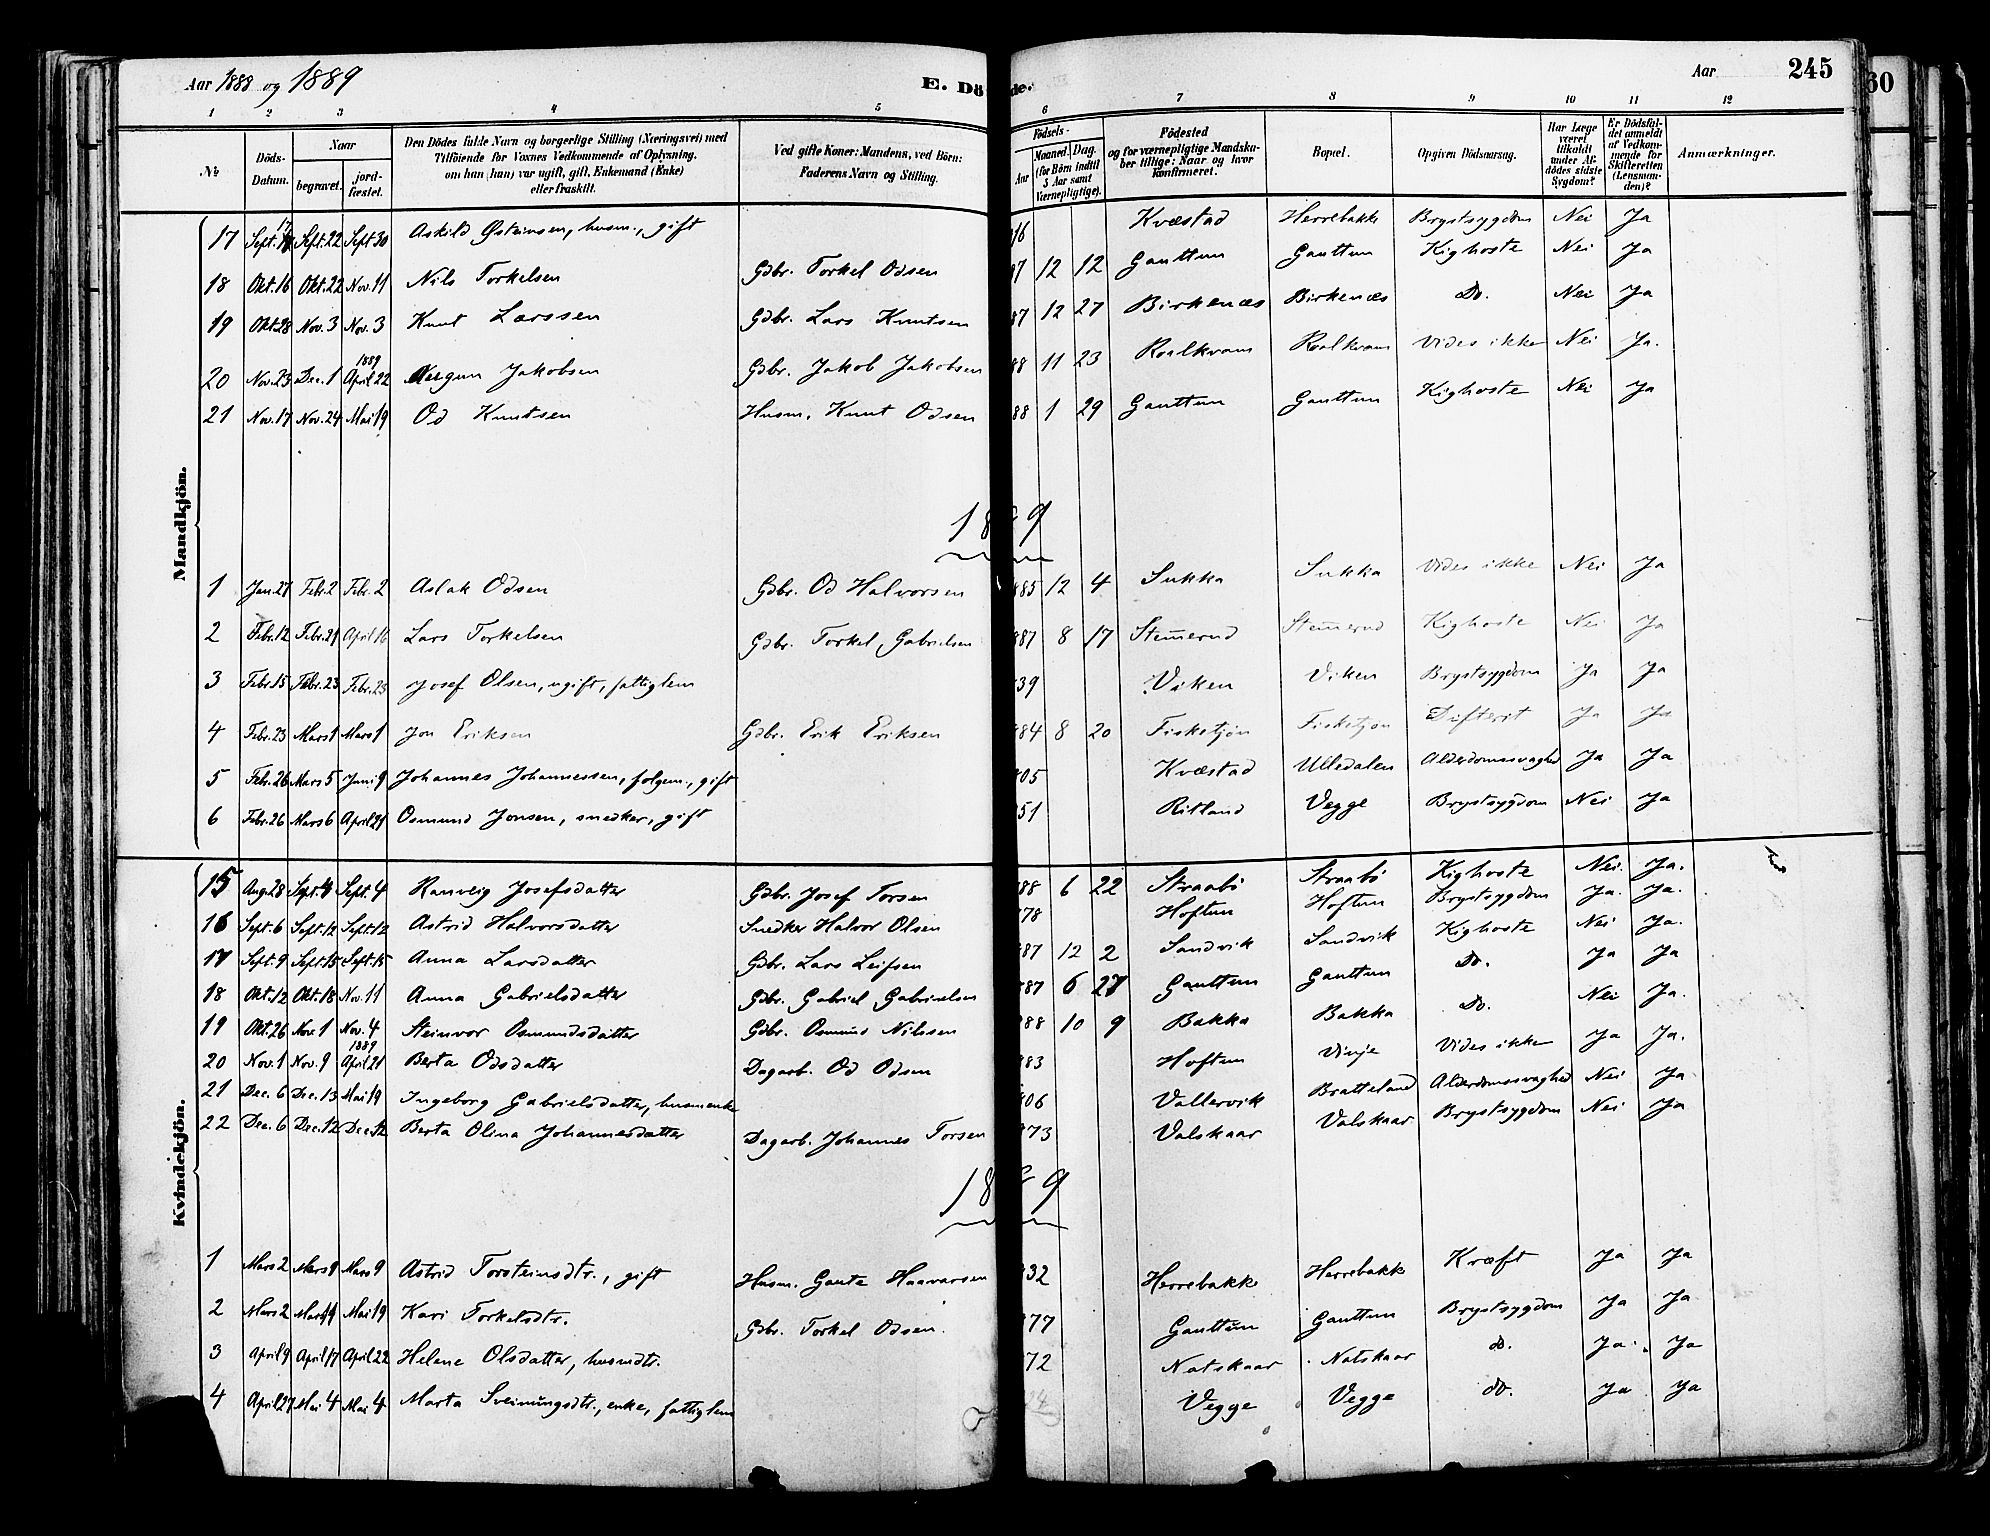 Aar 1888 og 1889
E. Dö
de.
Aar
245
60
1 2 3 4 5 6 7 8 9 10 11 12
№ Döds-Datum. Naar begravet. jord-fæstet. Den Dödes fulde Navn og borgerlige Stilling (Næringsvei) med Tilföiende for Voxnes Vedkommende af Oplysning, om han (hun) var ugift, gift, Enkemand (Enke) eller fraskilt. Ved gifte Koner: Mandens, ved Börn: Faderens Navn og Stilling. Födsels- Aar Maaned. Dag. (for Börn indtil 5 Aar samt Værnepligtige). Födested og for værnepligtige Mandskaber tillige: Naar og hvor Konfirmeret. Bopæl. Opgiven Dödsaarsag. Har Læge været tilkaldt under Afdödes sidste Sygdom? Er Dödsfaldet anmeldt af Vedkommende for Skifteretten (Lensmanden)? Anmærkninger.
Mandkjön.
17 Sept. 17 Sept. 22 Sept. 30 Askild Østeinsen, husm., gift 16 Kvæstad Herrebakk Brystsygdom Nei Ja
18 Okt. 16 Okt. 22 Nov. 11 Nils Torkelsen Gdbr. Torkel Odsen 87 12 12 Gauttun Gauttun Kighoste Nei Ja
19 Okt. 28 Nov. 3 Nov. 3 Knut Larssen Gdbr. Lars Knutsen 87 12 27 Birkenæs Birkenæs Do. Nei Ja
20 Nov. 23 Dec. 1 1889 April 22 Aergun Jakobsen Gdbr. Jakob Jakobsen 88 11 23 Roalkvam Roalkvam Vides ikke Nei Ja.
21 Nov. 17 Nov. 24 Mai 19 Od Knutsen Husm. Knut Odsen 88 1 29 Gauttun Gauttun Kighoste Nei Ja
1889
1 Jan. 27 Febr. 2 Febr. 2 Aslak Odsen Gdbr. Od Halvorsen 885 12 4 Sukka Sukka Vides ikke Nei Ja
2 Febr. 12 Febr. 21 April 16 Lars Torkelsen Gdbr. Torkel Gabrielsen 887 8 17 Stemmerud Stemmerud Kighoste Nei Ja
3 Febr. 15 Febr. 23 Febr. 23 Josef Olsen, ugift, fattiglem 39 Viken Viken Brystsygdom Ja Ja
4 Febr. 23 Mars 1 Mars 1 Jon Eriksen Gdbr. Erik Eriksen 84 8 20 Fisketjøn Fisketjøn Difterit Ja Ja
5 Febr. 26 Mars 5 Juni 9 Johannes Johannessen, folgem., gift 05 Kvæstad Ulledalen Alderdomssvaghed Ja Ja
6 Febr. 26 Mars 6 April 21 Osmund Jonsen, snedker, gift 51 Ritland Vegge Brystsygdom Nei Ja
Kvindekjön.
15 Aug. 28 Sept. 4 Sept. 4 Ranveig Josefsdatter Gdbr. Josef Torsen 88 6 22 Straabø Straabø Kighoste Nei. Ja.
16 Sept. 6 Sept. 12 Sept. 12 Astrid Halvorsdatter Snedker Halvor Olsen 78 Hoftun Hoftun Brystsygdom Ja. Ja.
17 Sept. 9 Sept. 15 Sept. 15 Anna Larsdatter Gdbr. Lars Leifsen 87 12 2 Sandvik Sandvik Kighoste Nei Ja.
18 Okt. 12 Okt. 18 Nov. 11 Anna Gabrielsdatter Gdbr. Gabriel Gabrielsen 87 6 27 Gauttun Gauttun Do. Ja Ja
19 Okt. 26 Nov. 1 Nov. 4 Steinvor Osmundsdatter Gdbr. Osmund Nilssen 88 10 9 Bakka Bakka Do. Nei Ja.
20 Nov. 1 Nov. 9 1889 April 21 Berta Odsdatter Dagarb. Od Odsen 83 Hoftun Vinje Vides ikke Ja Ja.
21 Dec. 6 Dec. 13 Mai 19 Ingeborg Gabrielsdatter, husmenke 06 Vallervik Bratteland Alderdomssvaghed Nei Ja
22 Dec. 6 Dec. 12 Dec. 12 Berta Olina Johannesdatter Dagarb. Johannes Torsen 73 Valskaar Valskaar Brystsygdom Nei Ja
1889
1 Mars 2 Mars 9 Mars 9 Astrid Torsteinsdtr., gift Husm. Gaute Haavarsen 32 Herrebakke Herrebakk Kræft Ja Ja
2 Mars 2 Mars 9 Mai 19 Kari Torkelsdtr. Gdbr. Torkel Odsen. 77 Gauttun Gauttun Brystsygdom Ja Ja
3 April 9 April 17 April 22 Helene Olsdatter, husmdtr. 72 Natskaar Natskaar do. Ja Ja
4 April 27 Mai 4 Mai 4 Marta Sveinungsdtr., enke, fattiglem 24 Vegge Vegge do. Ja Ja